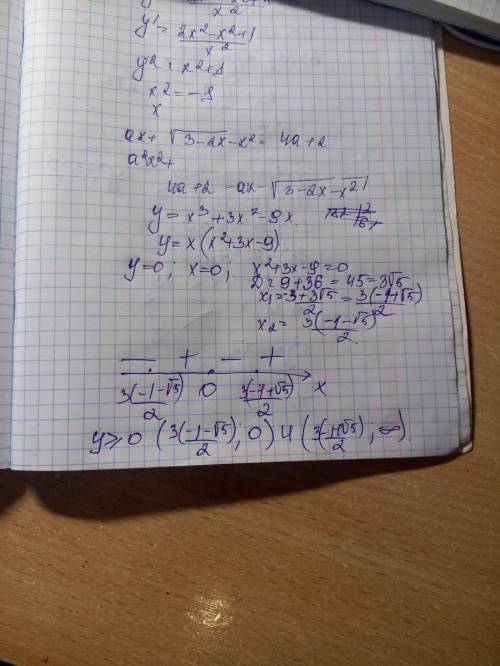 x2
y' = 2x²-x²+1 / x²
y² = x²+1
x² = -1
x
ax + √3-2x-x² = 4a+2
a²x²+
4a+2 -ax- √3-2x-x²
y = x³+3x²-9x
y = x(x²+3x-9)
y=0; x=0; x²+3x-9=0
D = 9+36 = 45 = 3√5
x₁ = -3+3√5 / 2 = 3(-1+√5) / 2
x₂ = 3(-1-√5) / 2
— + — +
3(-1-√5) / 2 0 3(-1+√5) / 2 x
y>0 (3(-1-√5) / 2; 0) U (3(-1+√5) / 2; ∞)